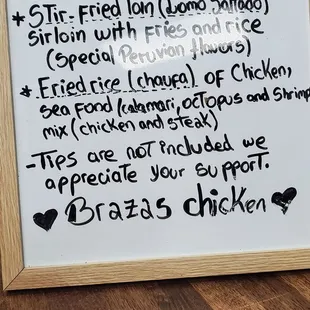 * STir-Fried loin (Lomo Saltado)
sirloin with fries and rice
(special Peruvian flavors)
* Fried rice (chaufa) of chicken,
sea food (calamari, octopus and shrimp
mix (chicken and steak)
-Tips are not included we
appreciate your support.
Brazas chicken